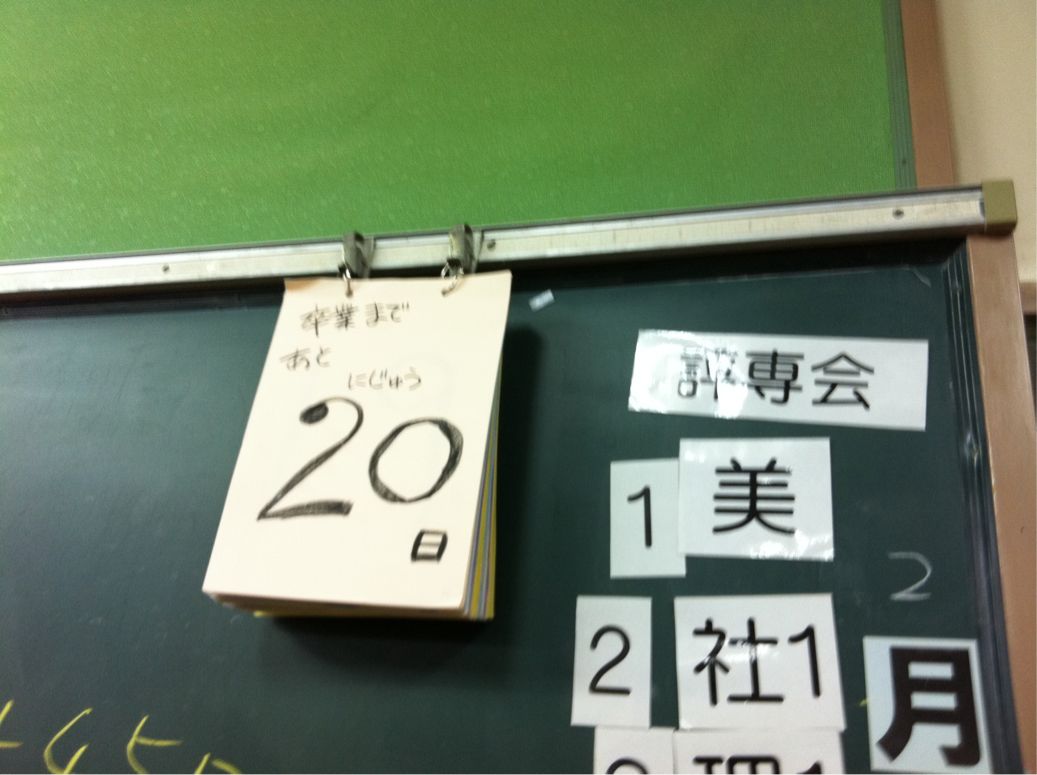 卒業まで
あと
にじゅう
20
日
評専会
1 美
2 社1
理1
2
月